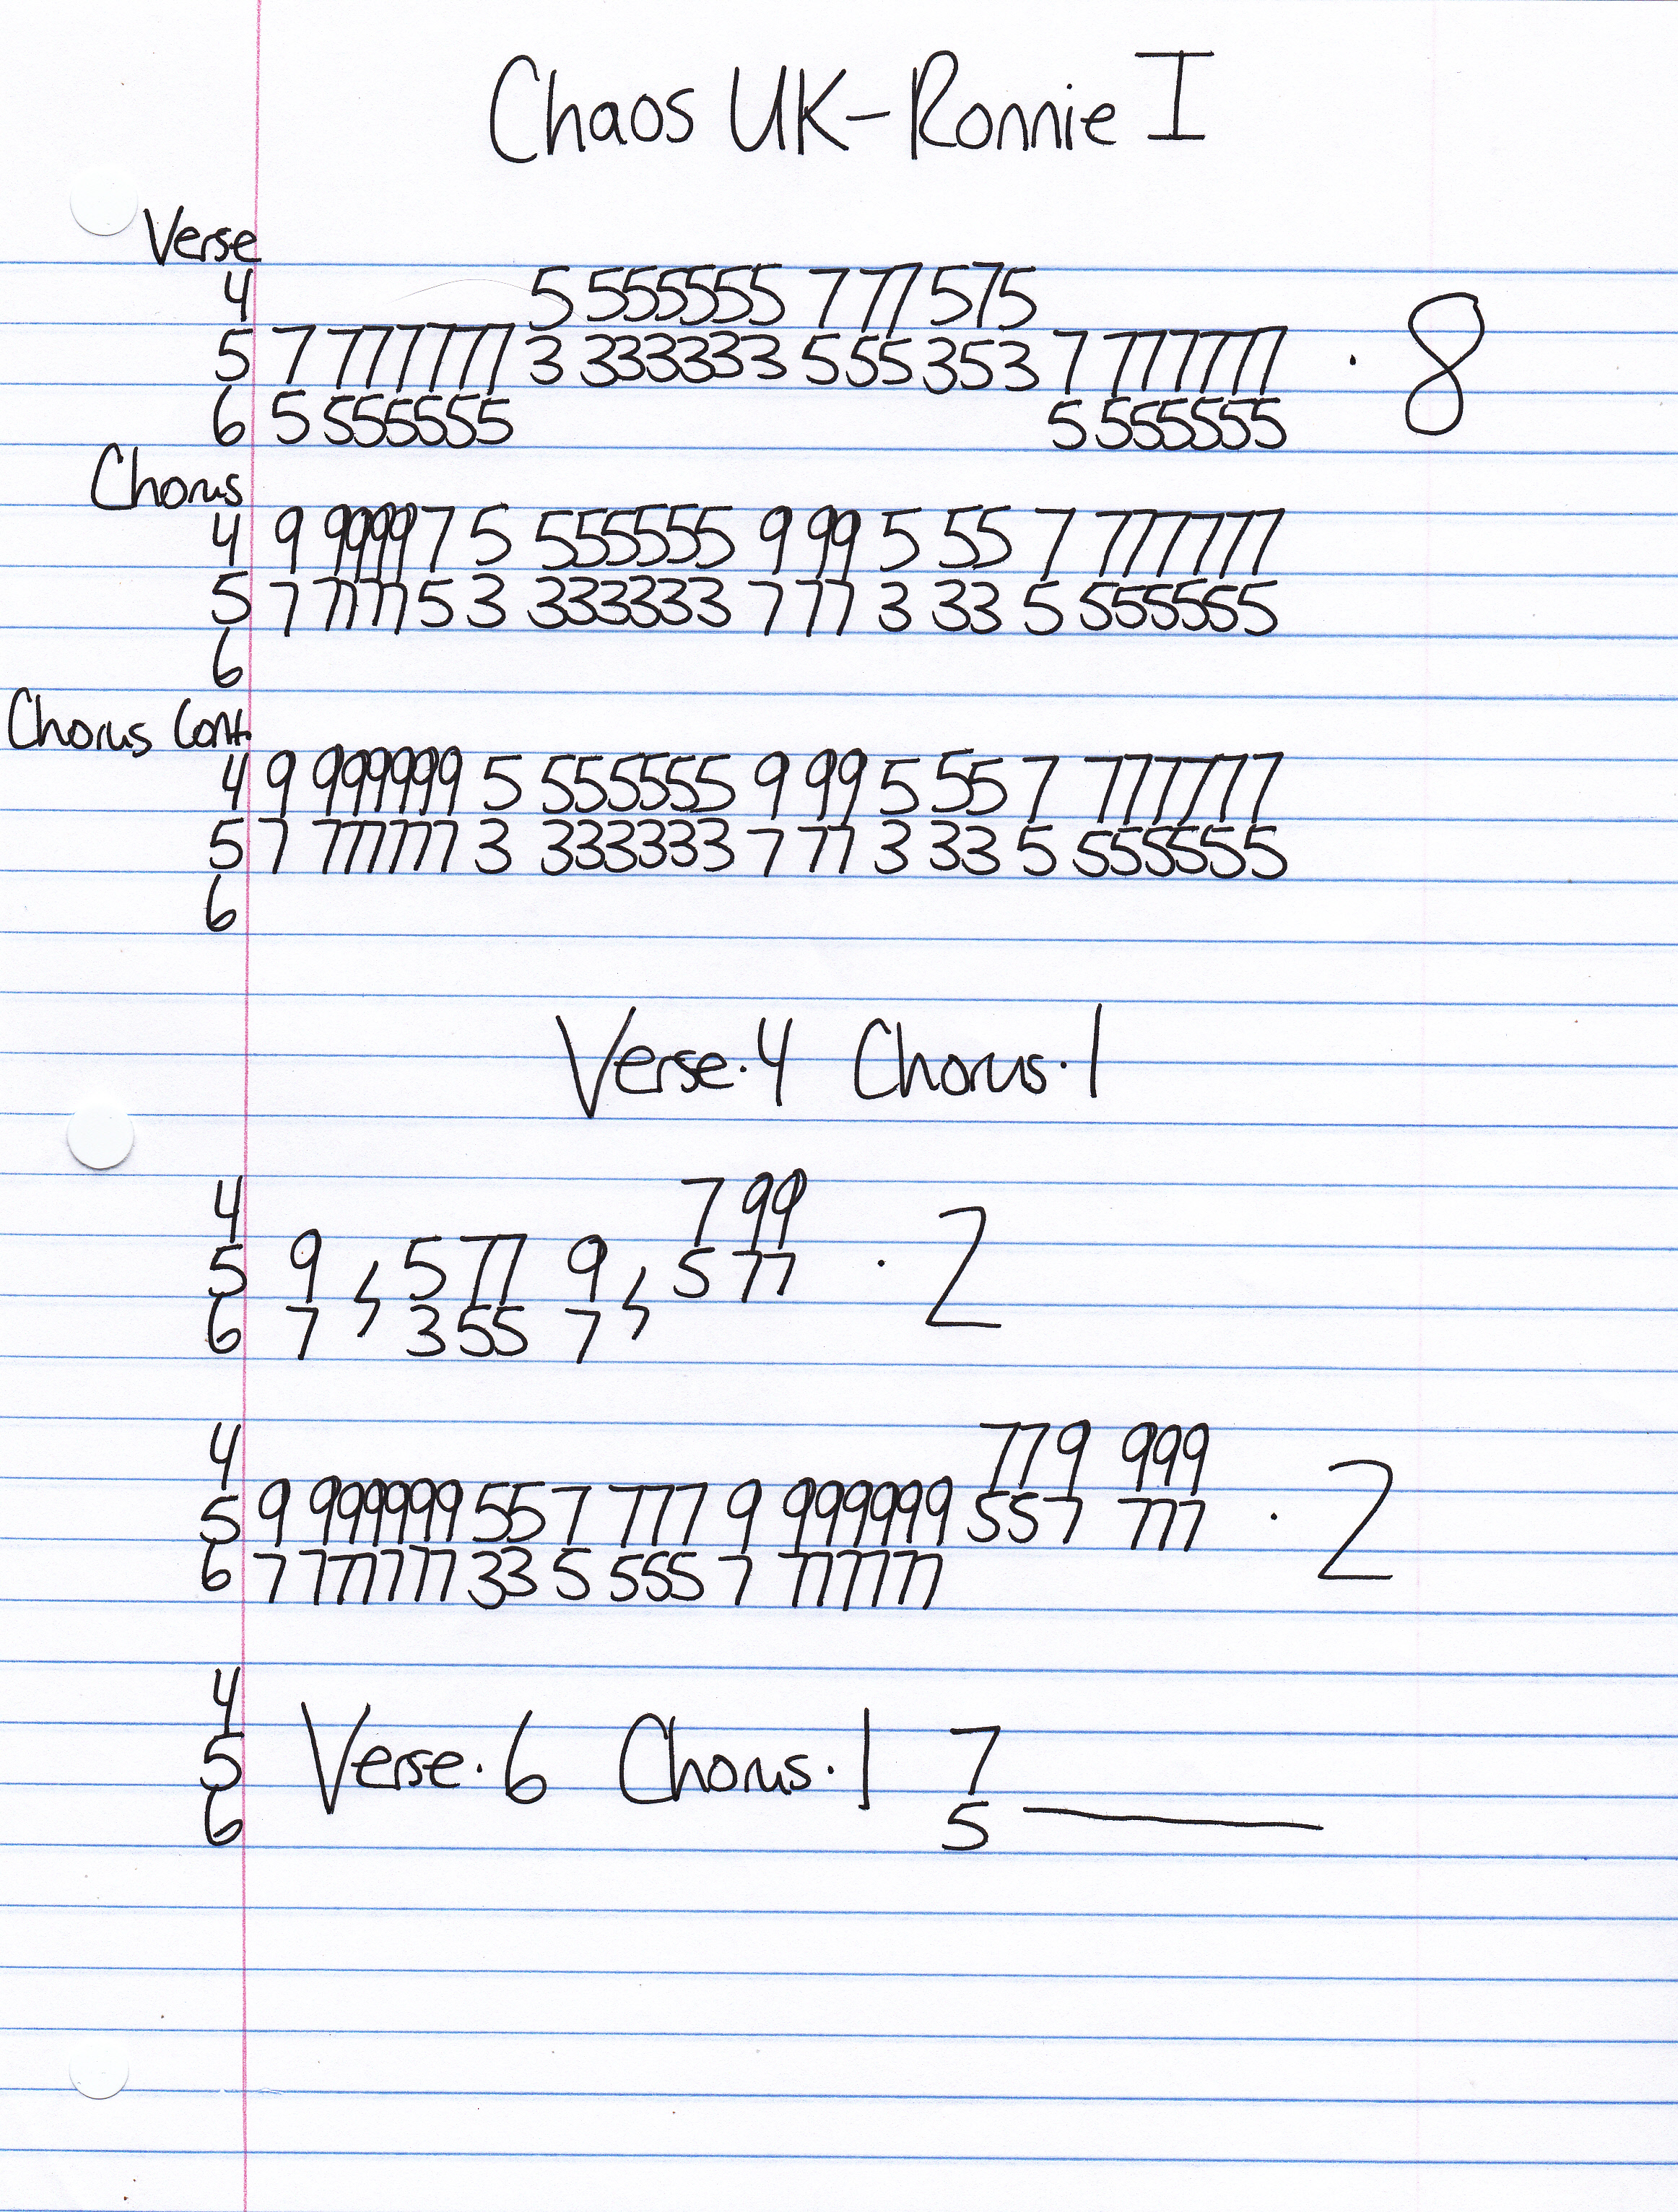 Chaos UK-Ronnie I
Verse
4 5 555555 777 575
5 7 777777 3 333333 555 353 7 777777 · 8
6 5 555555 5 555555
Chorus
4 9 99997 5 555555 9 99 5 55 7 777777
5 7 77775 3 333333 7 77 3 33 5 555555
6
Chorus Cont.
4 9 999999 5 555555 9 99 5 55 7 777777
5 7 777777 3 333333 7 77 3 33 5 555555
6
Verse·4 Chorus·1
4 7 99
5 9 , 5 77 9 , 5 77 · 2
6 7 3 55 7
4 779 999
5 9 999999 55 7 777 9 999999 557 777 · 2
6 7 777777 33 5 555 7 777777
4
5 Verse·6 Chorus·1 7
6 5 ______